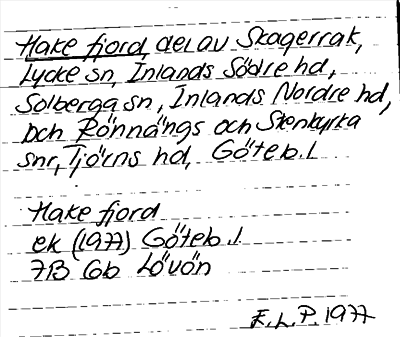 Hake fjord, del av Skagerrak,
Lycke sn, Inlands Södre hd,
Solberga sn, Inlands Nordre hd,
och Rönnängs och Stenkyrka
snr, Tjörns hd, Göteb. l
Hake fjord
ek (1977) Göteb. l.
7B 6b Lövön
E.L.P. 1977